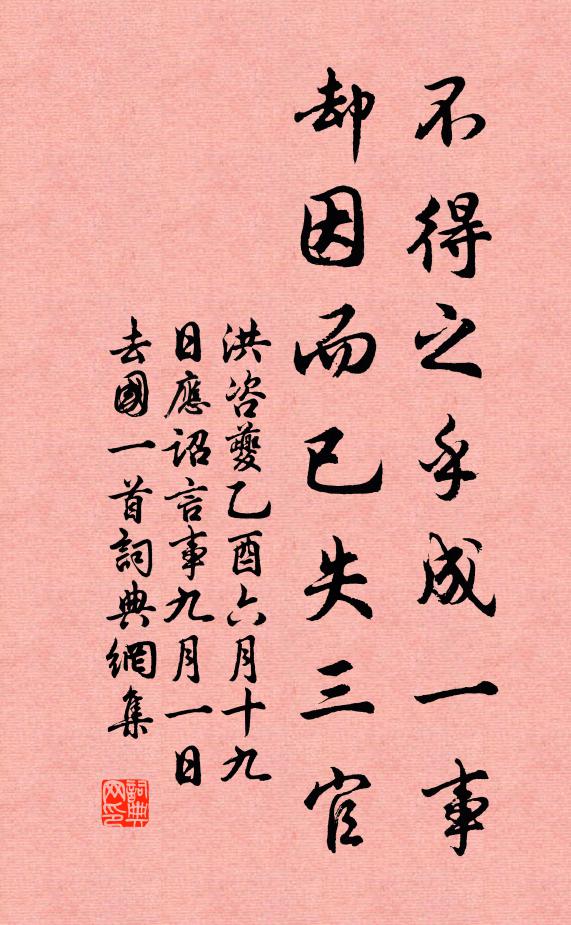 不得之乎成一事
却因而已失三官
洪咨夔乙酉六月十九
日應詔言事九月一日
去國一首詞典網集
詞典
网印